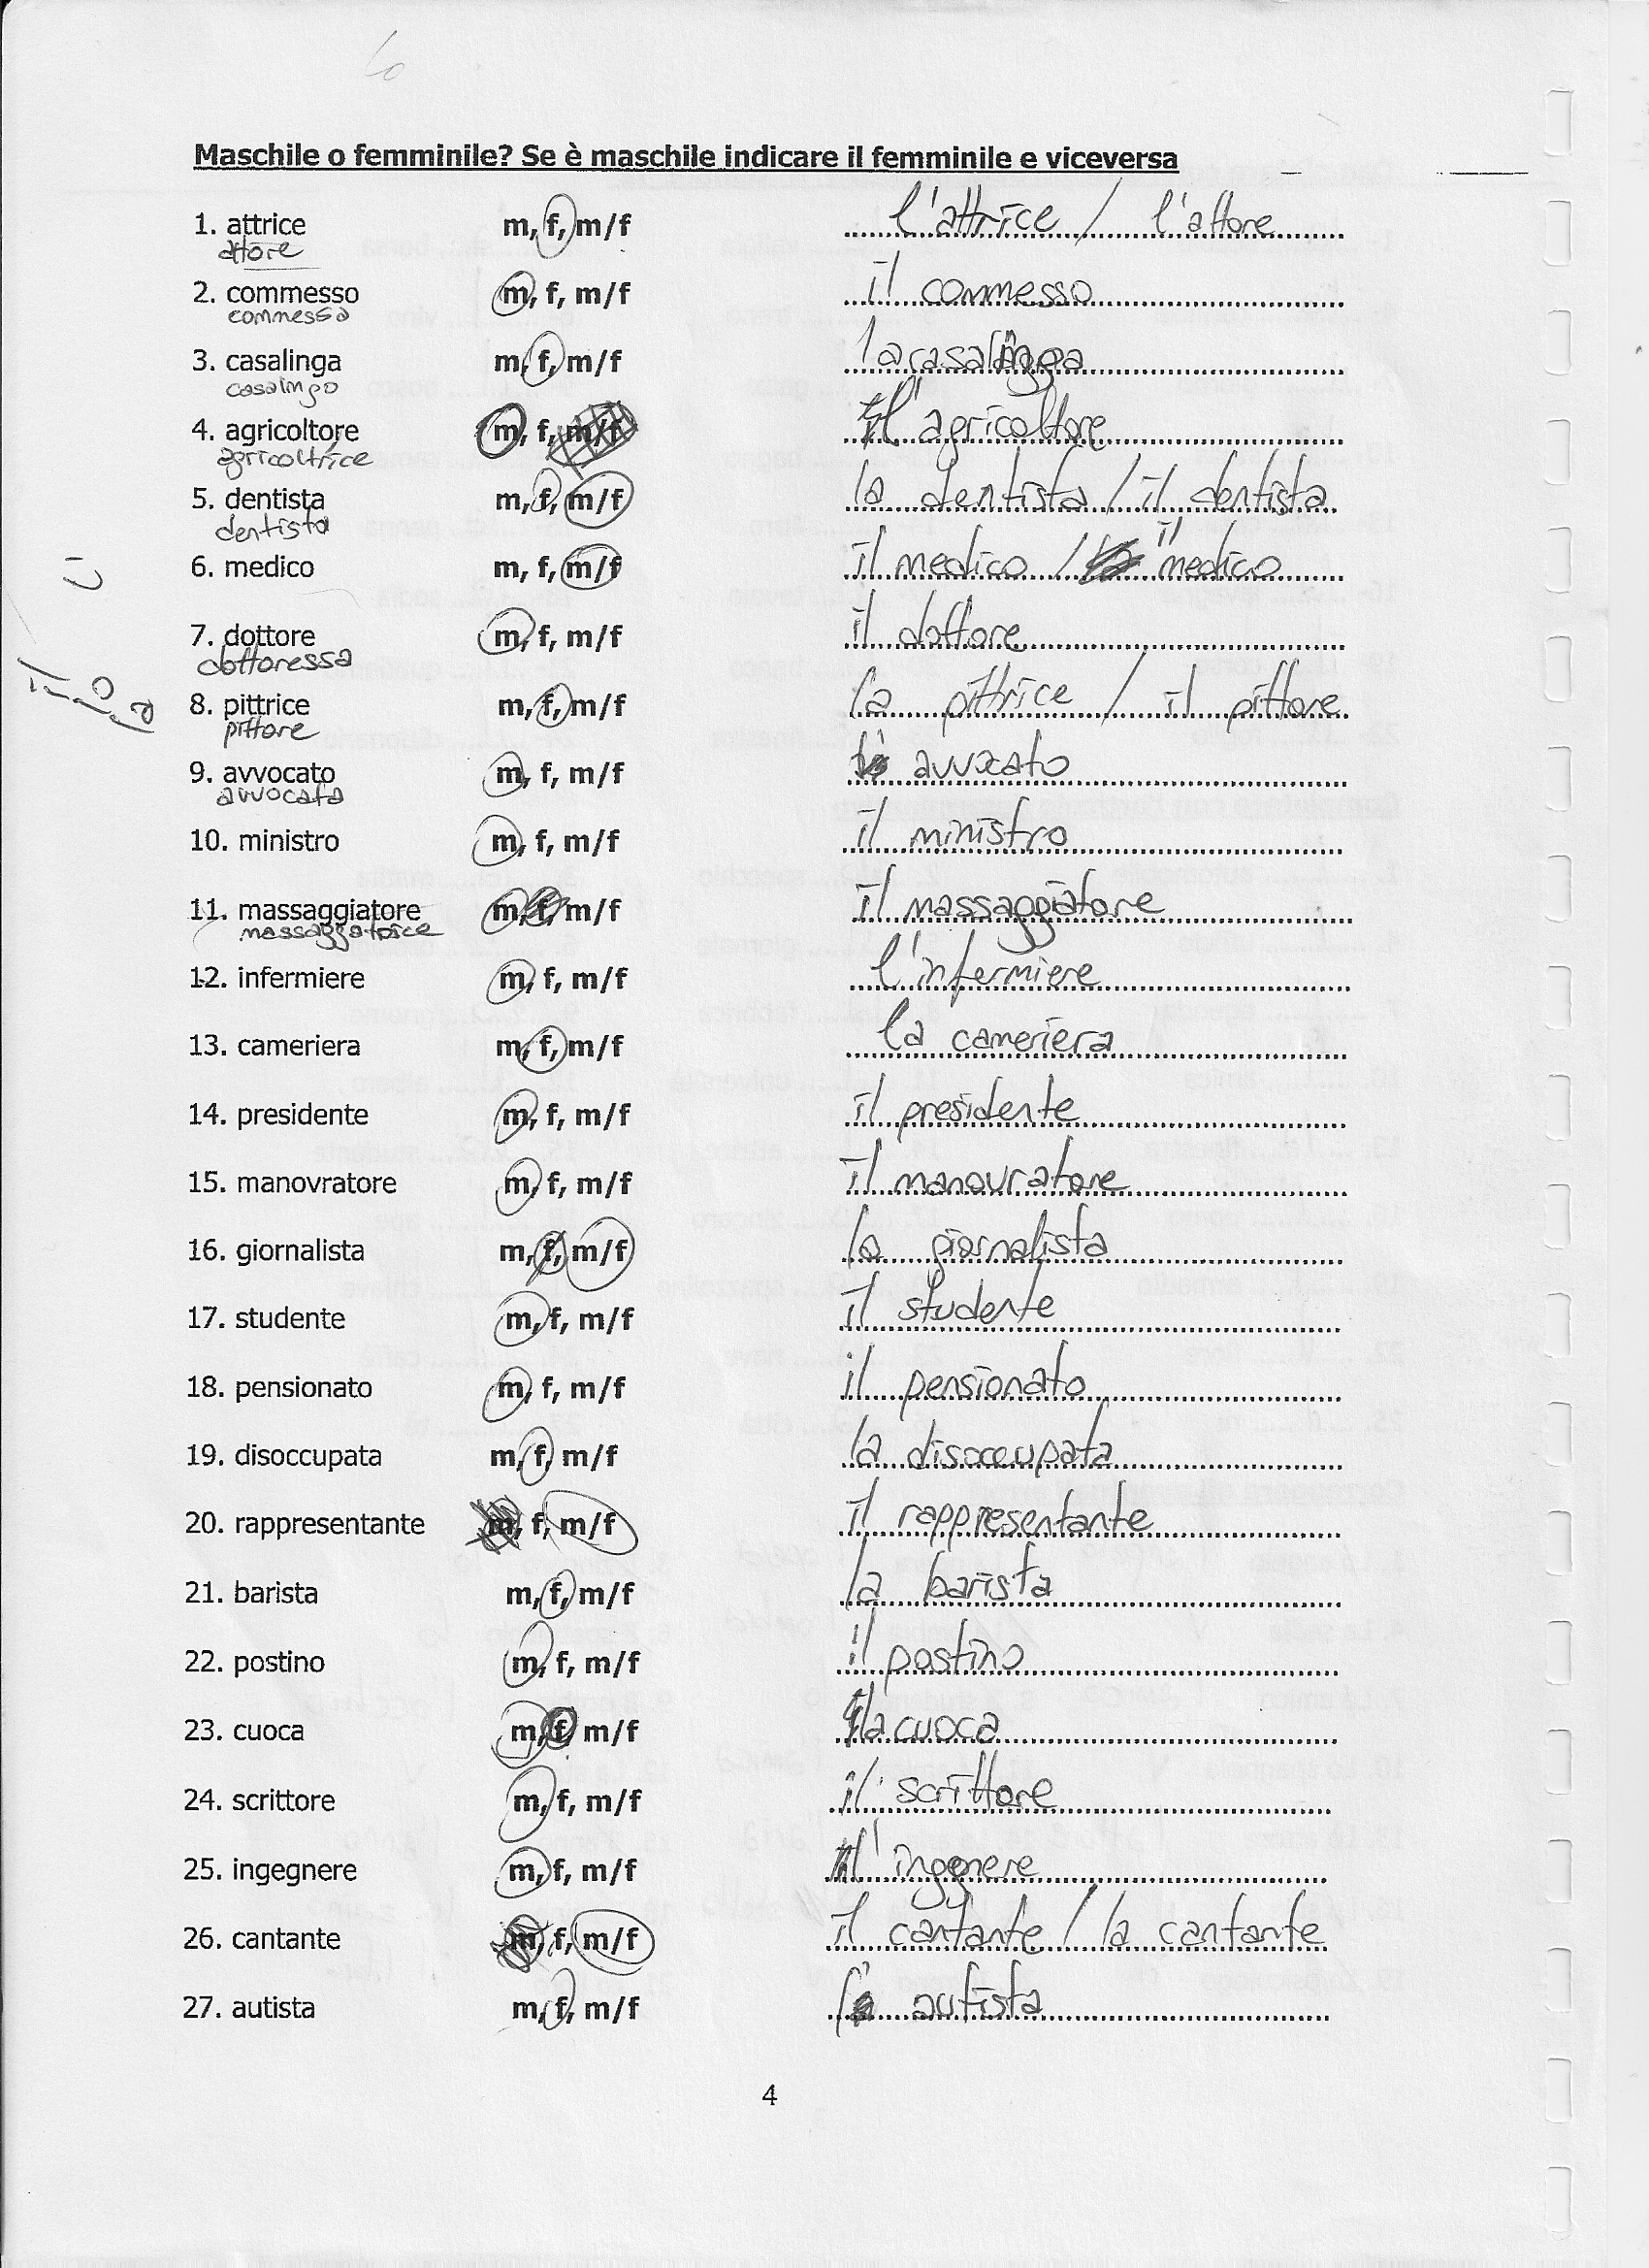 Maschile o femminile? Se è maschile indicare il femminile e viceversa
1. attrice m, f, m/f l'attrice / l'attore
attore
2. commesso m, f, m/f il commesso
commessa
3. casalinga m, f, m/f la casalinga
casalingo
4. agricoltore m, f, m/f l'agricoltore
agricoltrice
5. dentista m, f, m/f la dentista / il dentista
dentista
6. medico m, f, m/f il medico / il medico
7. dottore m, f, m/f il dottore
dottoressa
8. pittrice m, f, m/f la pittrice / il pittore
pittore
9. avvocato m, f, m/f avvocato
avvocata
10. ministro m, f, m/f il ministro
11. massaggiatore m, f, m/f il massaggiatore
massaggatrice
12. infermiere m, f, m/f l'infermiere
13. cameriera m, f, m/f la cameriera
14. presidente m, f, m/f il presidente
15. manovratore m, f, m/f il manovratore
16. giornalista m, f, m/f la giornalista
17. studente m, f, m/f il studente
18. pensionato m, f, m/f il pensionato
19. disoccupata m, f, m/f la disoccupata
20. rappresentante m, f, m/f il rappresentante
21. barista m, f, m/f la barista
22. postino m, f, m/f il postino
23. cuoca m, f, m/f la cuoca
24. scrittore m, f, m/f il scrittore
25. ingegnere m, f, m/f l'ingegnere
26. cantante m, f, m/f il cantante / la cantante
27. autista m, f, m/f autista
4